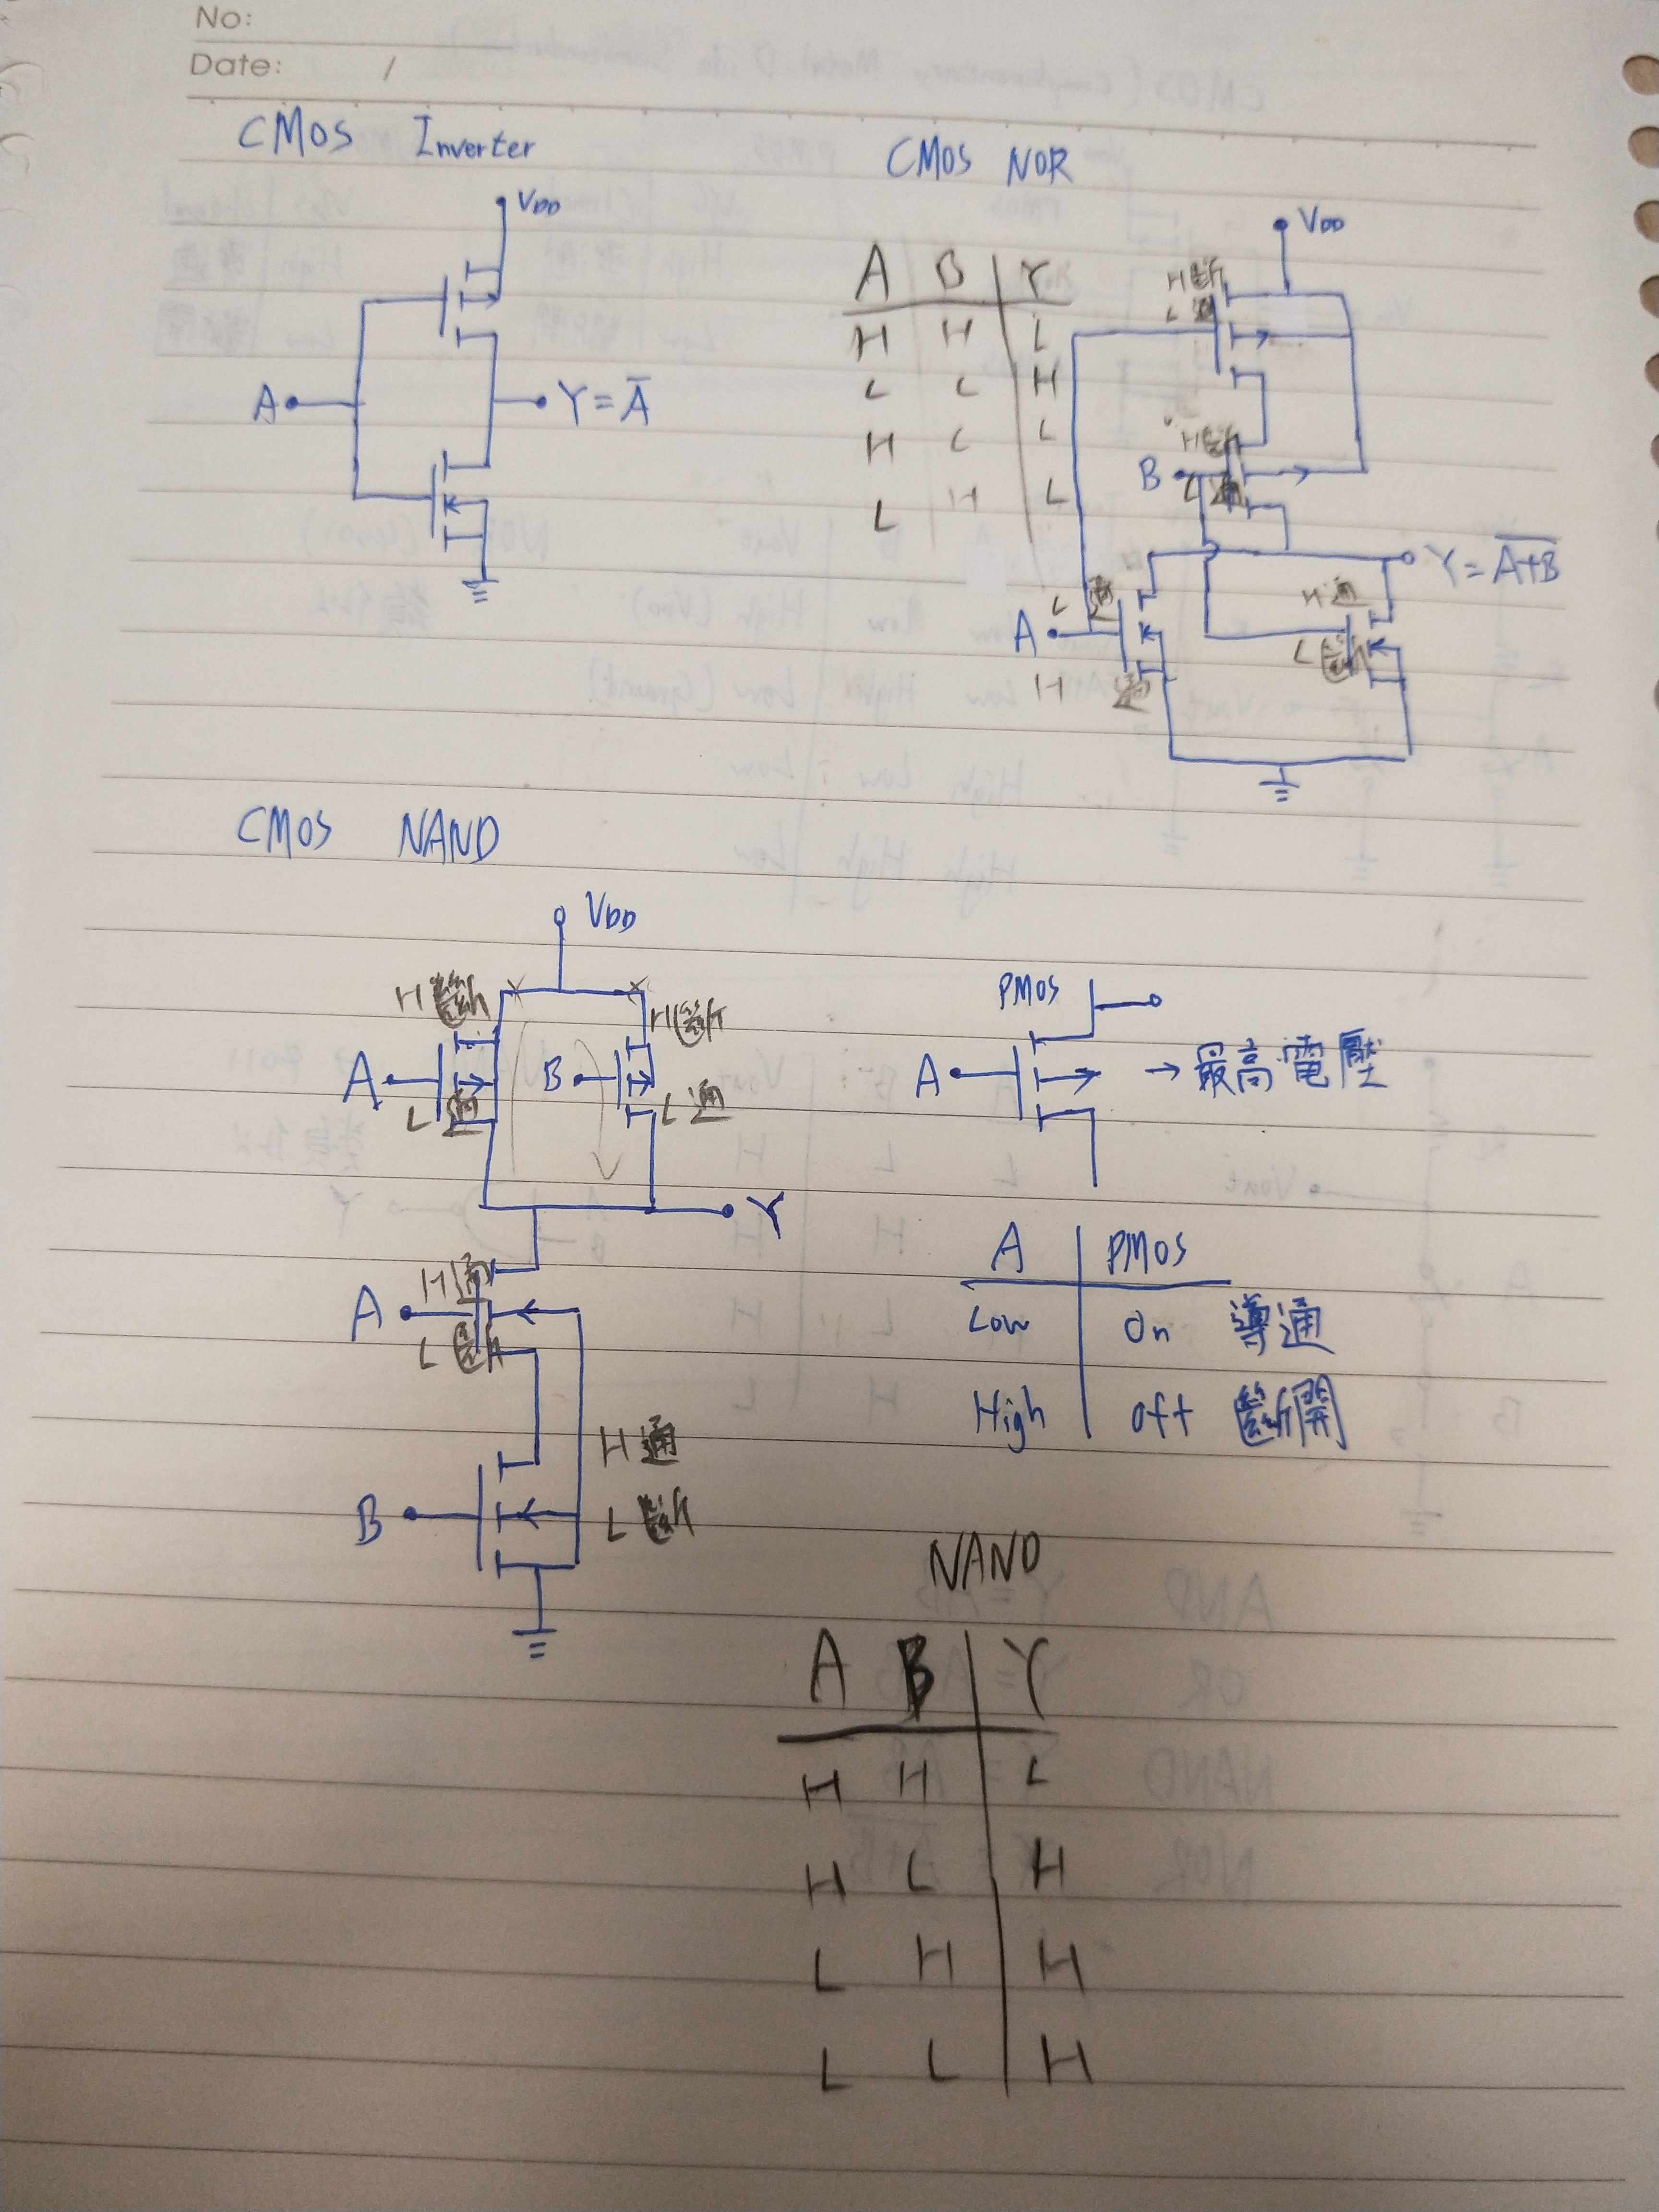 No:
Date: /
CMOS Inverter
VDD
A
Y = A̅
CMOS NOR
A B Y
H H L
L L H
H L L
L H L
VDD
H 斷
L 通
H 斷
B L 通
Y = A̅+̅B̅
L
A
H 通
H 通
L 斷
CMOS NAND
VDD
H 斷
H 斷
A
B
L 通
L 通
Y
H 通
A
L 斷
H 通
B
L 斷
PMOS
A → 最高電壓
A PMOS
Low On 導通
High Off 斷開
NAND
A B Y
H H L
H L H
L H H
L L H